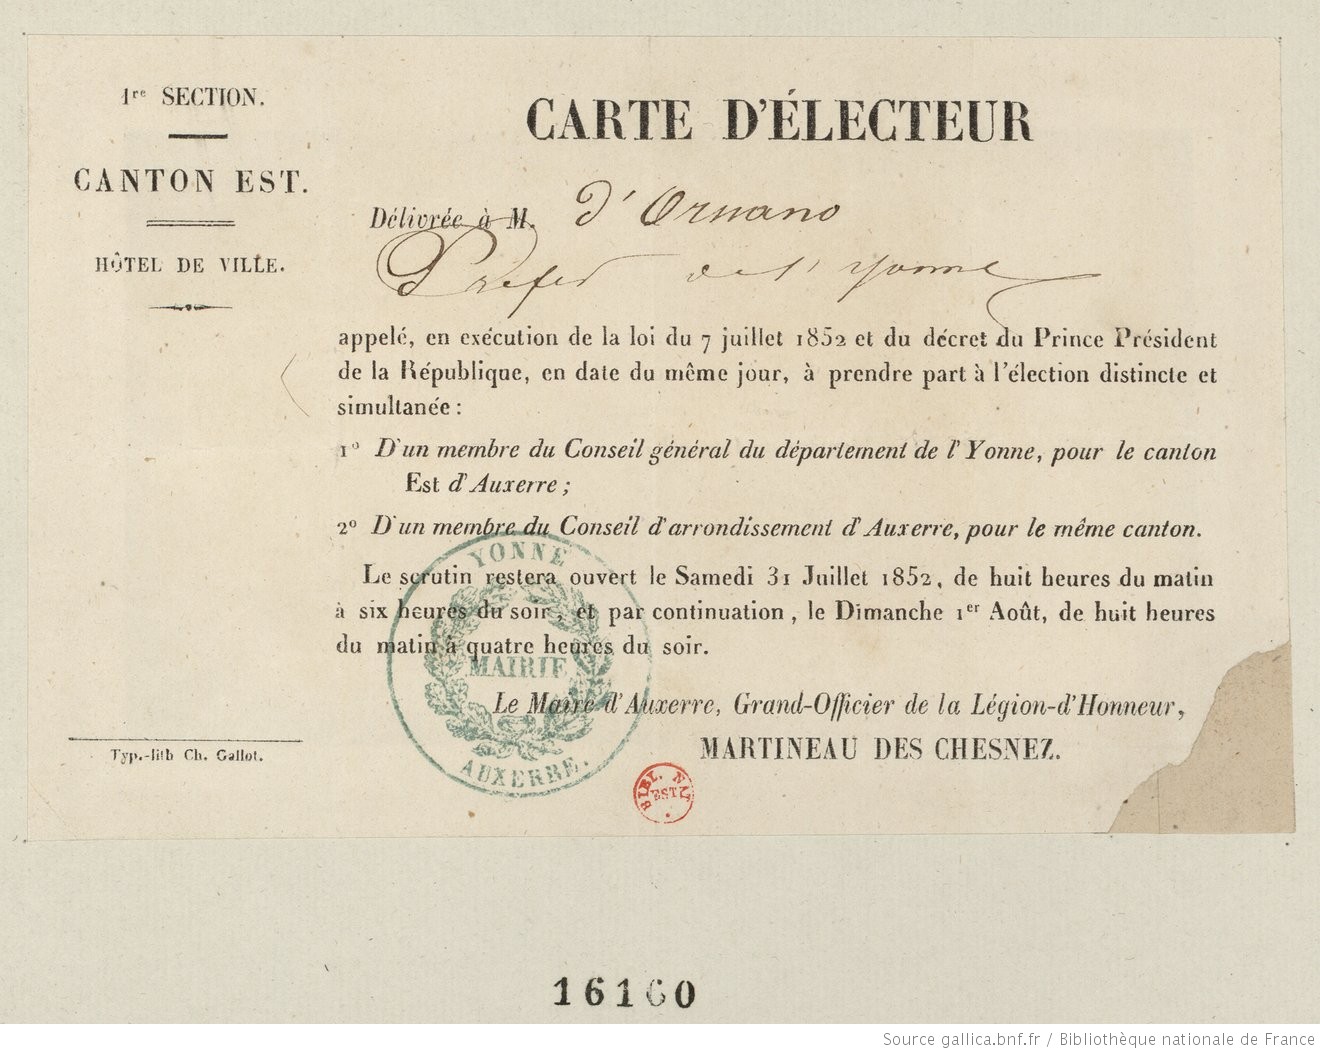 1re SECTION.
CANTON EST.
HÔTEL DE VILLE.
CARTE D'ÉLECTEUR
Délivrée à M. d'Ornano
Préfet de l'Yonne
appelé, en exécution de la loi du 7 juillet 1852 et du décret du Prince Président
de la République, en date du même jour, à prendre part à l'élection distincte et
simultanée :
1º D'un membre du Conseil général du département de l'Yonne, pour le canton
Est d'Auxerre ;
2º D'un membre du Conseil d'arrondissement d'Auxerre, pour le même canton.
Le scrutin restera ouvert le Samedi 31 Juillet 1852, de huit heures du matin
à six heures du soir, et par continuation, le Dimanche 1er Août, de huit heures
du matin à quatre heures du soir.
Le Maire d'Auxerre, Grand-Officier de la Légion-d'Honneur,
MARTINEAU DES CHESNEZ.
Typ.-lith Ch. Gallot.
YONNE
MAIRIE
AUXERRE.
BIBL. NAT
EST.
16160
Source gallica.bnf.fr / Bibliothèque nationale de France